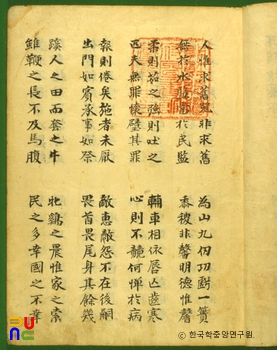 人惟求舊器非求舊 為山九仞功虧一簣
無於水監當於民監 黍稷非馨明德惟馨
柔則茹之強則吐之 輔車相依唇亡齒寒
匹夫無罪懷璧其罪 心則不競何憚於病
報則倦矣施者未厭 敵惠敵怨不在後嗣
出門如賓承事如祭 畏首畏尾身其餘幾
蹊人之田而奪之牛 牝鷄之晨惟家之索
雖鞭之長不及馬腹 民之多幸國之不幸
ⓒ 한국학중앙연구원